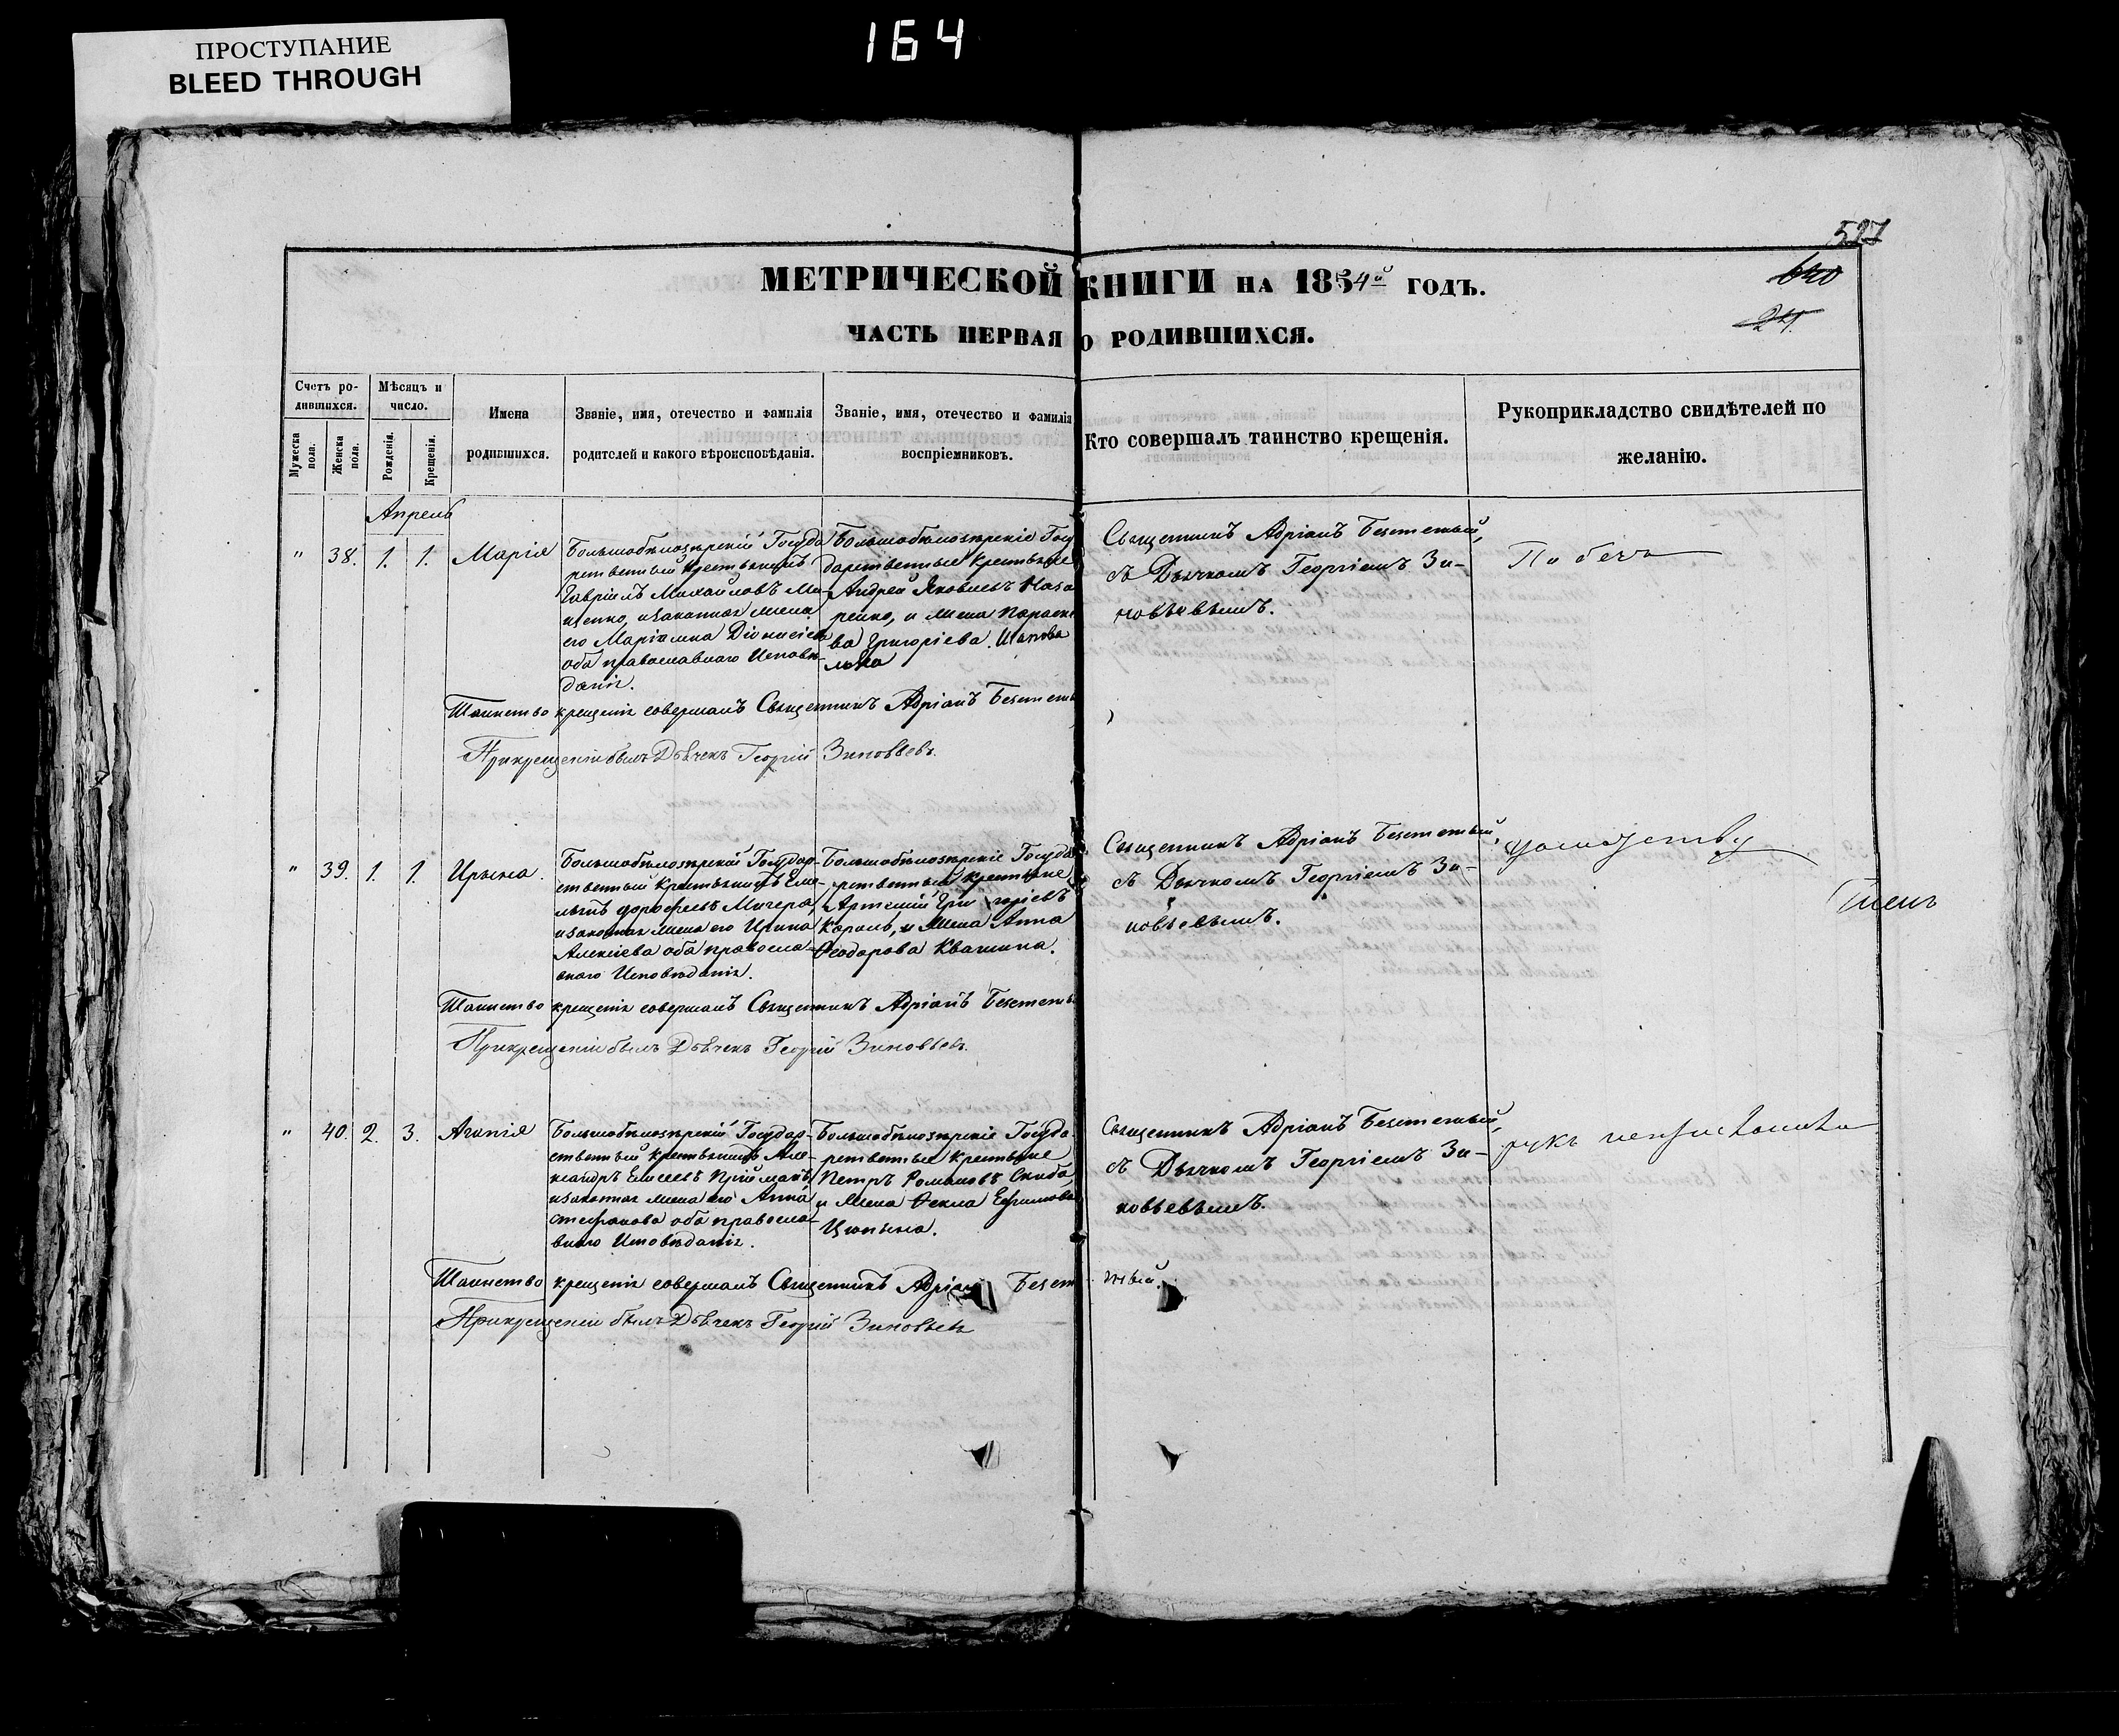 ПРОСТУПАНИЕ
BLEED THROUGH
164
527
МЕТРИЧЕСКОЙ КНИГИ НА 1854й ГОДЪ.
24.
ЧАСТЬ ПЕРВАЯ О РОДИВШИХСЯ.
Счетъ ро-
дившихся.
Мужеска
пола.
Женска
пола.
Мѣсяцъ и
число.
Рожденія.
Крещенія.
Имена
родившихся.
Званіе, имя, отечество и фамилія
родителей и какого вѣроисповѣданія.
Званіе, имя, отечество и фамилія
воспріемниковъ.
Кто совершалъ таинство крещенія.
Рукоприкладство свидѣтелей по
желанію.
Апрель
" 38. 1. 1. Марія
Большобѣлозѣрскій Госуда
рственный крестьянинъ
Гавріилъ Михайловъ
изаконная жена
его Маріамна Діонисіева
оба православного Исповѣ-
данія.
Большобѣлозѣрскіе Госу
дарственные Крестьяне
Андрей Яковлевъ Наза
ренко, и жена Параске
ва Григоріева.
Священникъ Адріанъ
съ Дьячкомъ Георгіемъ Зи-
новьевымъ.
По безъ
Таинство крещенія совершалъ Священникъ Адріанъ
Прикрещеніи былъ Дьячекъ Георгій Зиновьевъ.
" 39. 1. 1. Ирына.
Большобѣлозѣрскій Государ-
ственный Крестьянинъ Еме-
льянъ дорофеевъ
изаконная жена его Ирина
Алексіева оба правосла-
вного Исповѣданія.
Большобѣлозѣрскіе Госуда
рственные крестьяне
Григоріевъ
Король, и жена Анна
Ѳеодорова Квашина.
Священникъ Адріанъ
съ Дьячкомъ Георгіемъ Зи-
новьевымъ.
Таинство крещенія совершалъ Священникъ Адріанъ
Прикрещеніи былъ Дьячекъ Георгій Зиновьевъ.
" 40. 2. 3. Агапія
Большобѣлозѣрскій Государ-
ственный крестьянинъ Але-
ксандръ Елисеевъ Пріймакъ,
изаконная жена его Анна
стефанова оба правосла-
вного Исповѣданія.
Большобѣлозѣрскіе Госуда
рственные Крестьяне
Петръ Романовъ Скиба,
и жена Ѳекла Ефимова
Священникъ Адріанъ
съ Дьячкомъ Георгіемъ Зи-
новьевымъ.
Таинство крещенія совершалъ Священникъ
Прикрещеніи былъ Дьячекъ Георгій Зиновьевъ